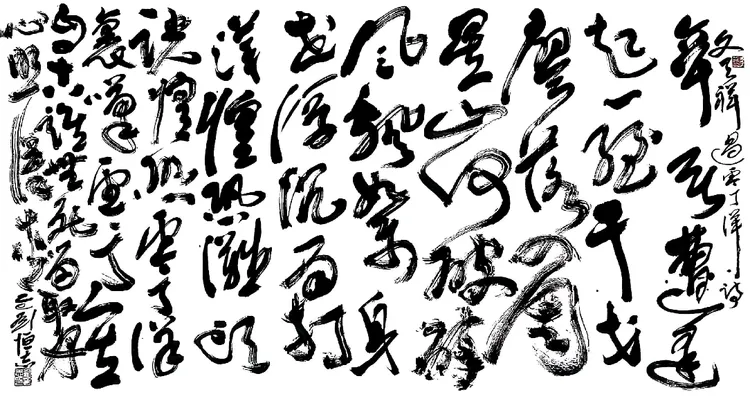 文天祥過零丁洋诗
辛苦遭逢
起一經干戈
寥落四周
星山河破碎
風飄絮身
世浮沉雨打
萍惶恐灘頭
說惶恐零丁洋
裏嘆零丁人生
自古誰無死留取丹
心照汗青